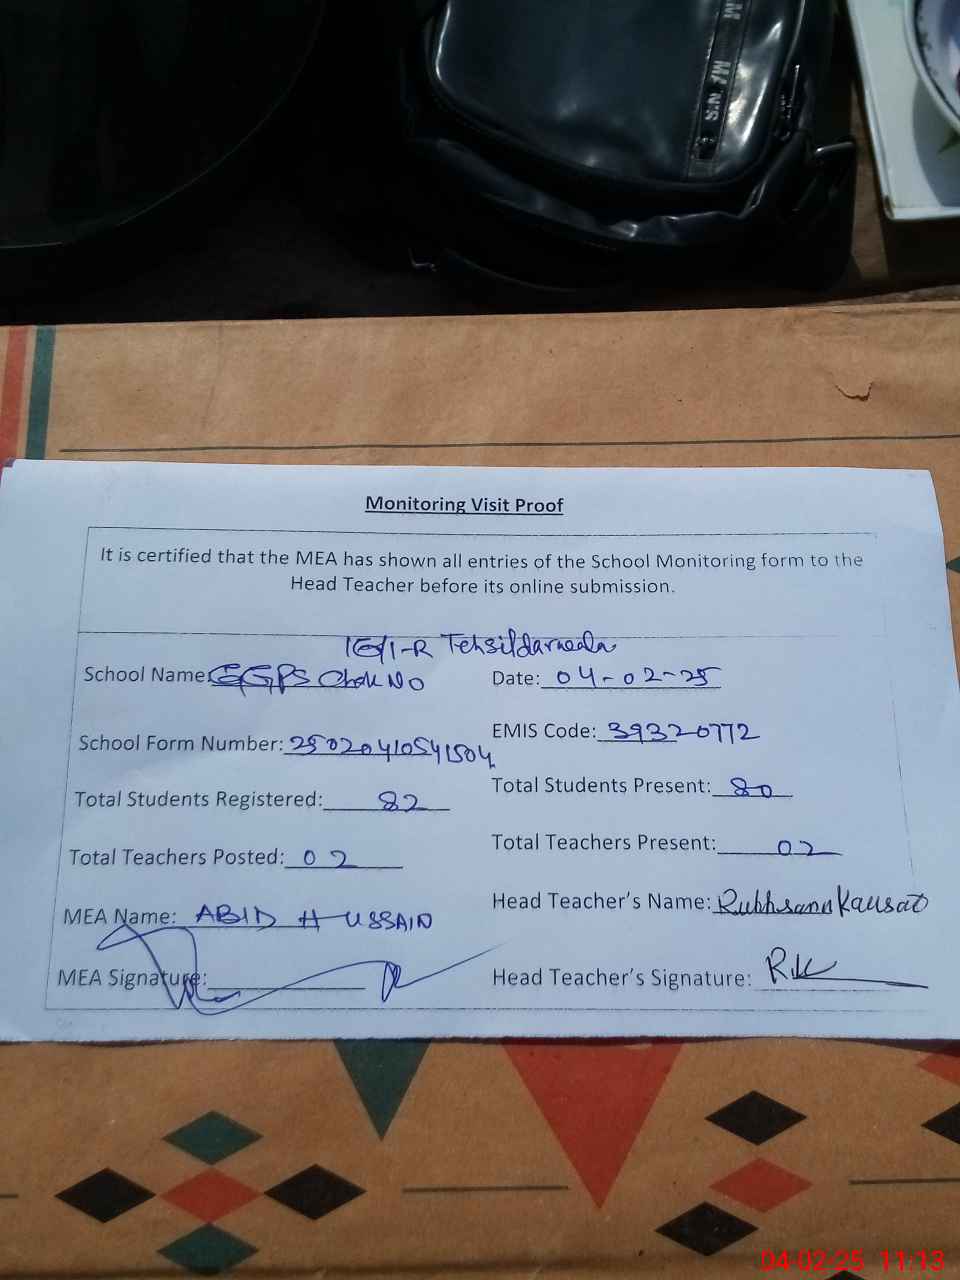 MANS
Monitoring Visit Proof
It is certified that the MEA has shown all entries of the School Monitoring form to the
Head Teacher before its online submission.
School Name: GGPS Chak No 16/1-R Tehsildarwala
Date: 04-02-25
School Form Number: 25020410541504
EMIS Code: 39320772
Total Students Registered: 82
Total Students Present: 80
Total Teachers Posted: 02
Total Teachers Present: 02
MEA Name: ABID HUSSAIN
Head Teacher's Name: Rukhsana Kausar
MEA Signature:
Head Teacher's Signature: RK
04-02-25 11:13